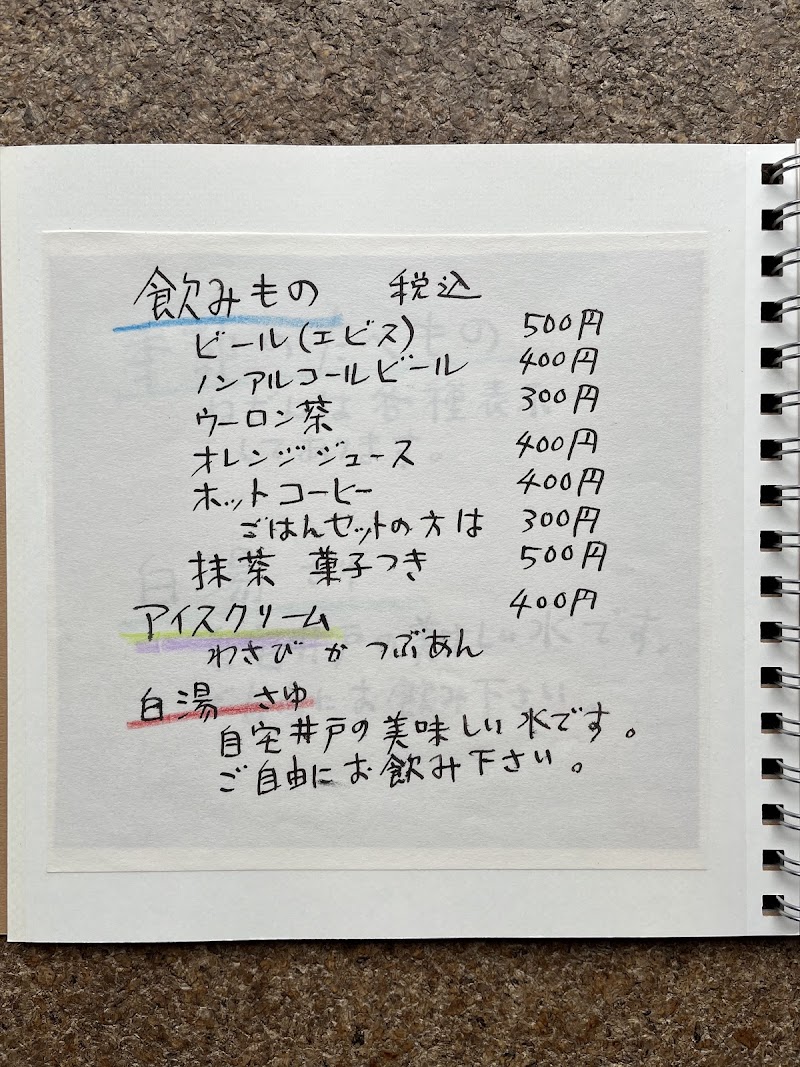 飲みもの 税込
ビール(エビス) 500円
ノンアルコールビール 400円
ウーロン茶 300円
オレンジジュース 400円
ホットコーヒー 400円
ごはんセットの方は 300円
抹茶 菓子つき 500円
アイスクリーム 400円
わさび か つぶあん
白湯 さゆ
自宅井戸の美味しい水です。
ご自由にお飲み下さい。